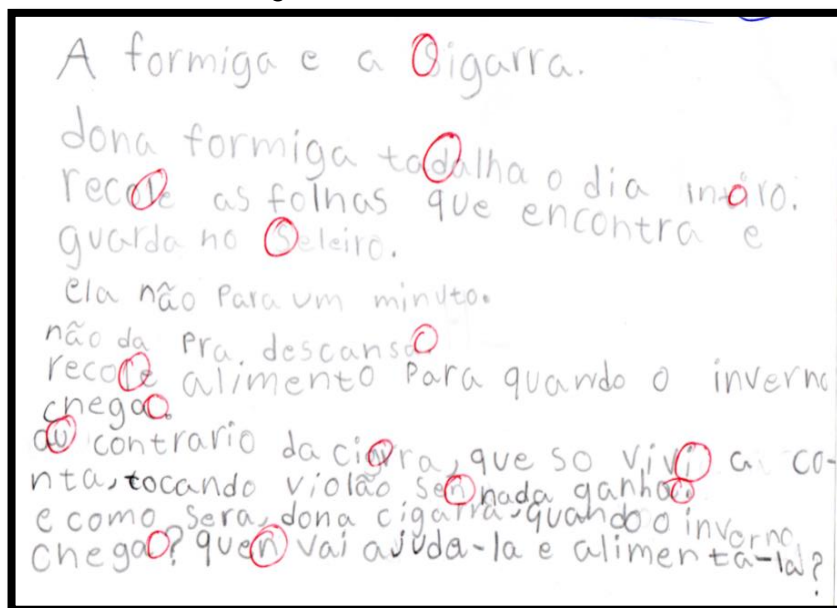 A formiga e a Sigarra.
dona formiga tadalha o dia intåro.
recole as folhas que encontra e
guarda no Seleiro.
ela não Para um minuto.
não da Pra. descansa
recole alimento Para quando o inverno
chega.
au contrario da cigara, que so vivi a co-
nta, tocando violão sen nada ganha.
e como sera, dona cigarra, quando o inverno
chega? quen vai ajuda-la e alimenta-la?